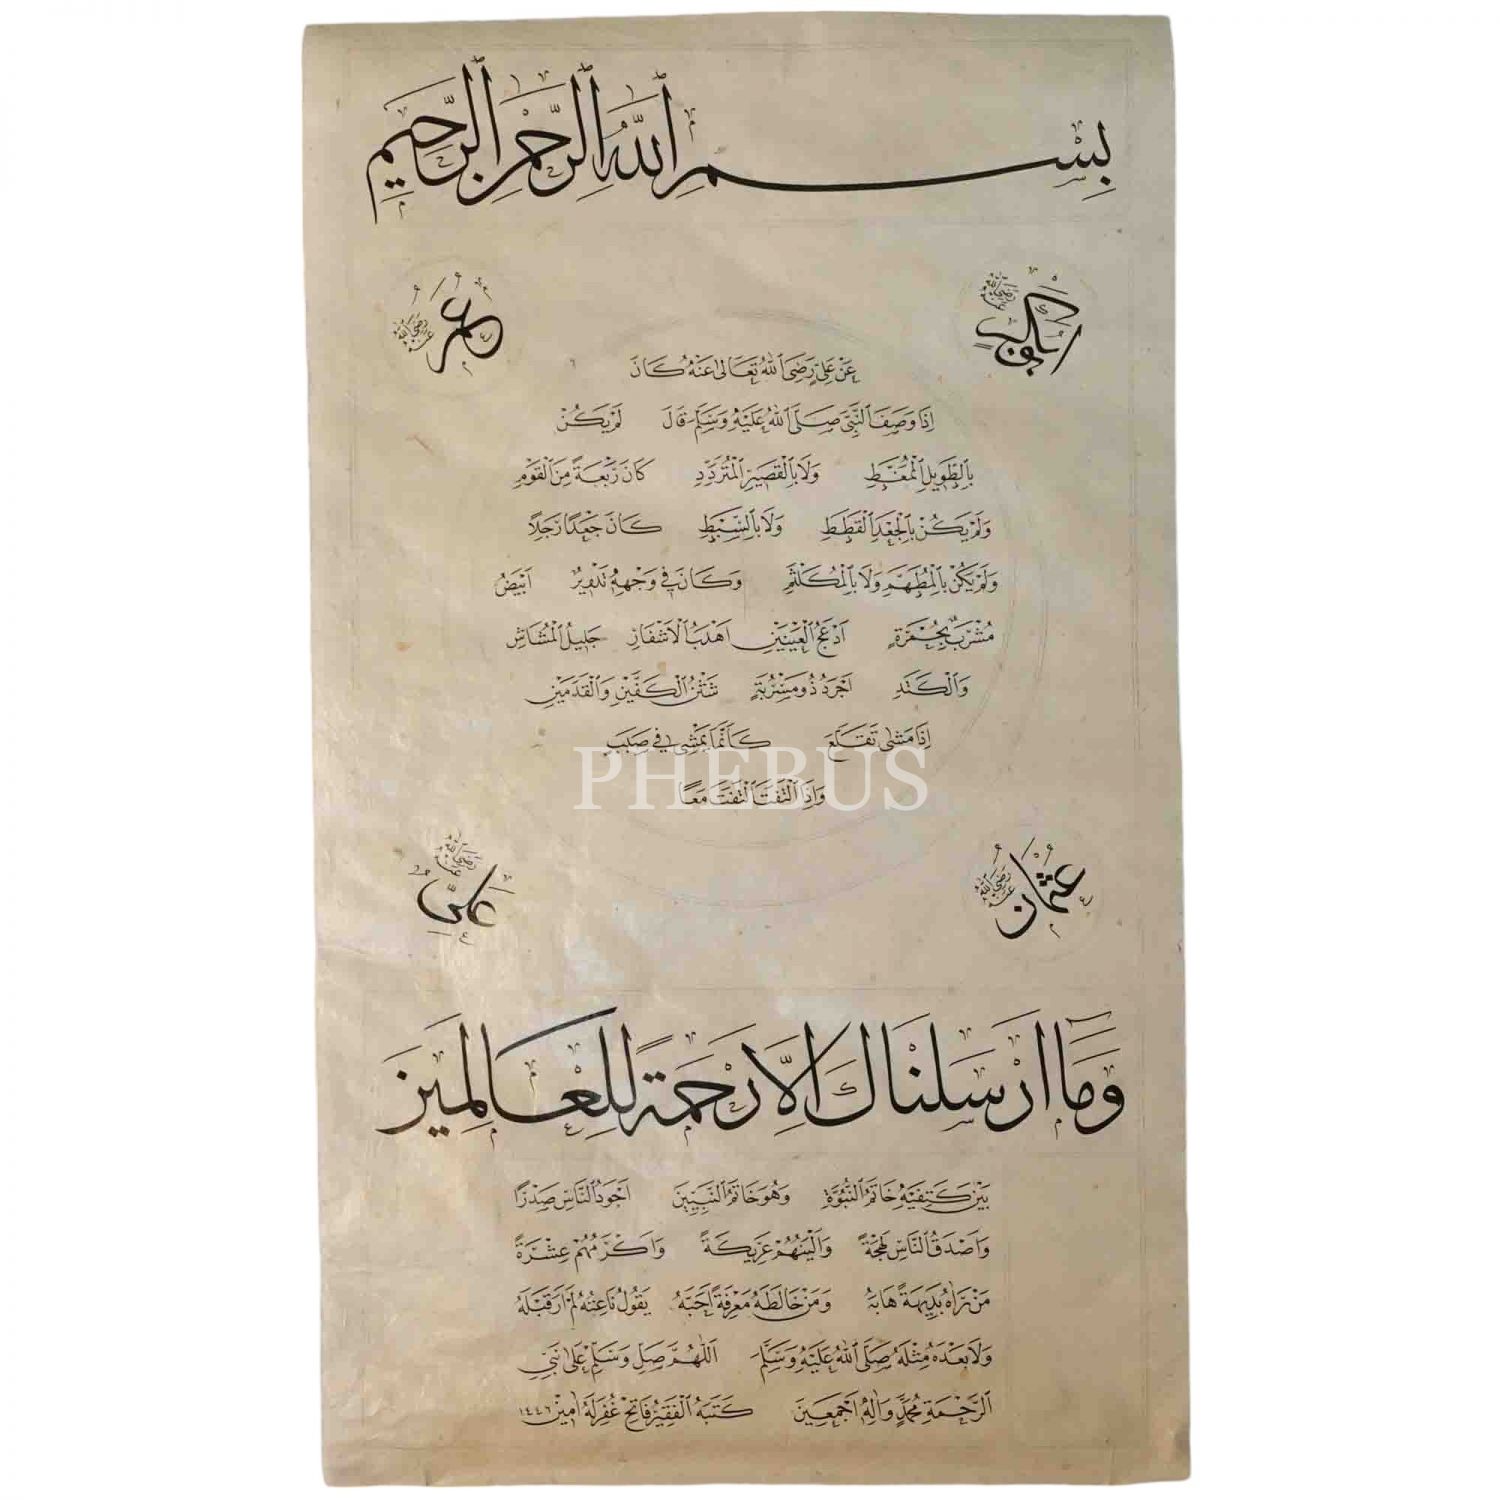 بِسْمِ ٱللّٰهِ ٱلرَّحْمٰنِ ٱلرَّحِيمِ
ابُوبَكْرٍ رَضِيَ ٱللّٰهُ عَنْهُ
عُمَرُ رَضِيَ ٱللّٰهُ عَنْهُ
عَنْ عَلِيٍّ رَضِيَ ٱللّٰهُ تَعَالٰى عَنْهُ كَانَ
اِذَا وَصَفَ ٱلنَّبِيَّ صَلَّى ٱللّٰهُ عَلَيْهِ وَسَلَّمَ قَالَ لَمْ يَكُنْ
بِٱلطَّوِيلِ ٱلْمُمَّغِطِ وَلَا بِٱلْقَصِيرِ ٱلْمُتَرَدِّدِ كَانَ رَبْعَةً مِنَ ٱلْقَوْمِ
وَلَمْ يَكُنْ بِٱلْجَعْدِ ٱلْقَطَطِ وَلَا بِٱلسَّبِطِ كَانَ جَعْدًا رَجِلًا
وَلَمْ يَكُنْ بِٱلْمُطَهَّمِ وَلَا بِٱلْمُكَلْثَمِ وَكَانَ فِي وَجْهِهِ تَدْوِيرٌ اَبْيَضُ
مُشْرَبٌ بِحُمْرَةٍ اَدْعَجُ ٱلْعَيْنَيْنِ اَهْدَبُ ٱلْاَشْفَارِ جَلِيلُ ٱلْمُشَاشِ
وَٱلْكَتَدِ اَجْرَدُ ذُو مَسْرُبَةٍ شَثْنُ ٱلْكَفَّيْنِ وَٱلْقَدَمَيْنِ
اِذَا مَشٰى تَقَلَّعَ كَاَنَّمَا يَمْشِي فِي صَبَبٍ
PHEBUS
وَاِذَا ٱلْتَفَتَ ٱلْتَفَتَ مَعًا
عُثْمَانُ رَضِيَ ٱللّٰهُ عَنْهُ
عَلِيٌّ رَضِيَ ٱللّٰهُ عَنْهُ
وَمَٓا اَرْسَلْنَاكَ اِلَّا رَحْمَةً لِلْعَالَمِينَ
بَيْنَ كَتِفَيْهِ خَاتَمُ ٱلنُّبُوَّةِ وَهُوَ خَاتَمُ ٱلنَّبِيِّينَ اَجْوَدُ ٱلنَّاسِ صَدْرًا
وَاَصْدَقُ ٱلنَّاسِ لَهْجَةً وَاَلْيَنُهُمْ عَرِيكَةً وَاَكْرَمُهُمْ عِشْرَةً
مَنْ رَاٰهُ بَدِيهَةً هَابَهُ وَمَنْ خَالَطَهُ مَعْرِفَةً اَحَبَّهُ يَقُولُ نَاعِتُهُ لَمْ اَرَ قَبْلَهُ
وَلَا بَعْدَهُ مِثْلَهُ صَلَّى ٱللّٰهُ عَلَيْهِ وَسَلَّمَ اَللّٰهُمَّ صَلِّ وَسَلِّمْ عَلٰى نَبِيِّ
ٱلرَّحْمَةِ مُحَمَّدٍ وَاٰلِهِ اَجْمَعِينَ كَتَبَهُ ٱلْفَقِيرُ فَاتِحْ غُفِرَلَهُ اٰمِينْ ١٤٤٦